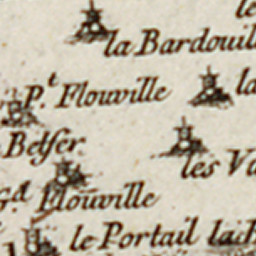 le
la Bardouil
P.t Flouville
la
Belser
les Va
G.d Flouville
le Portail